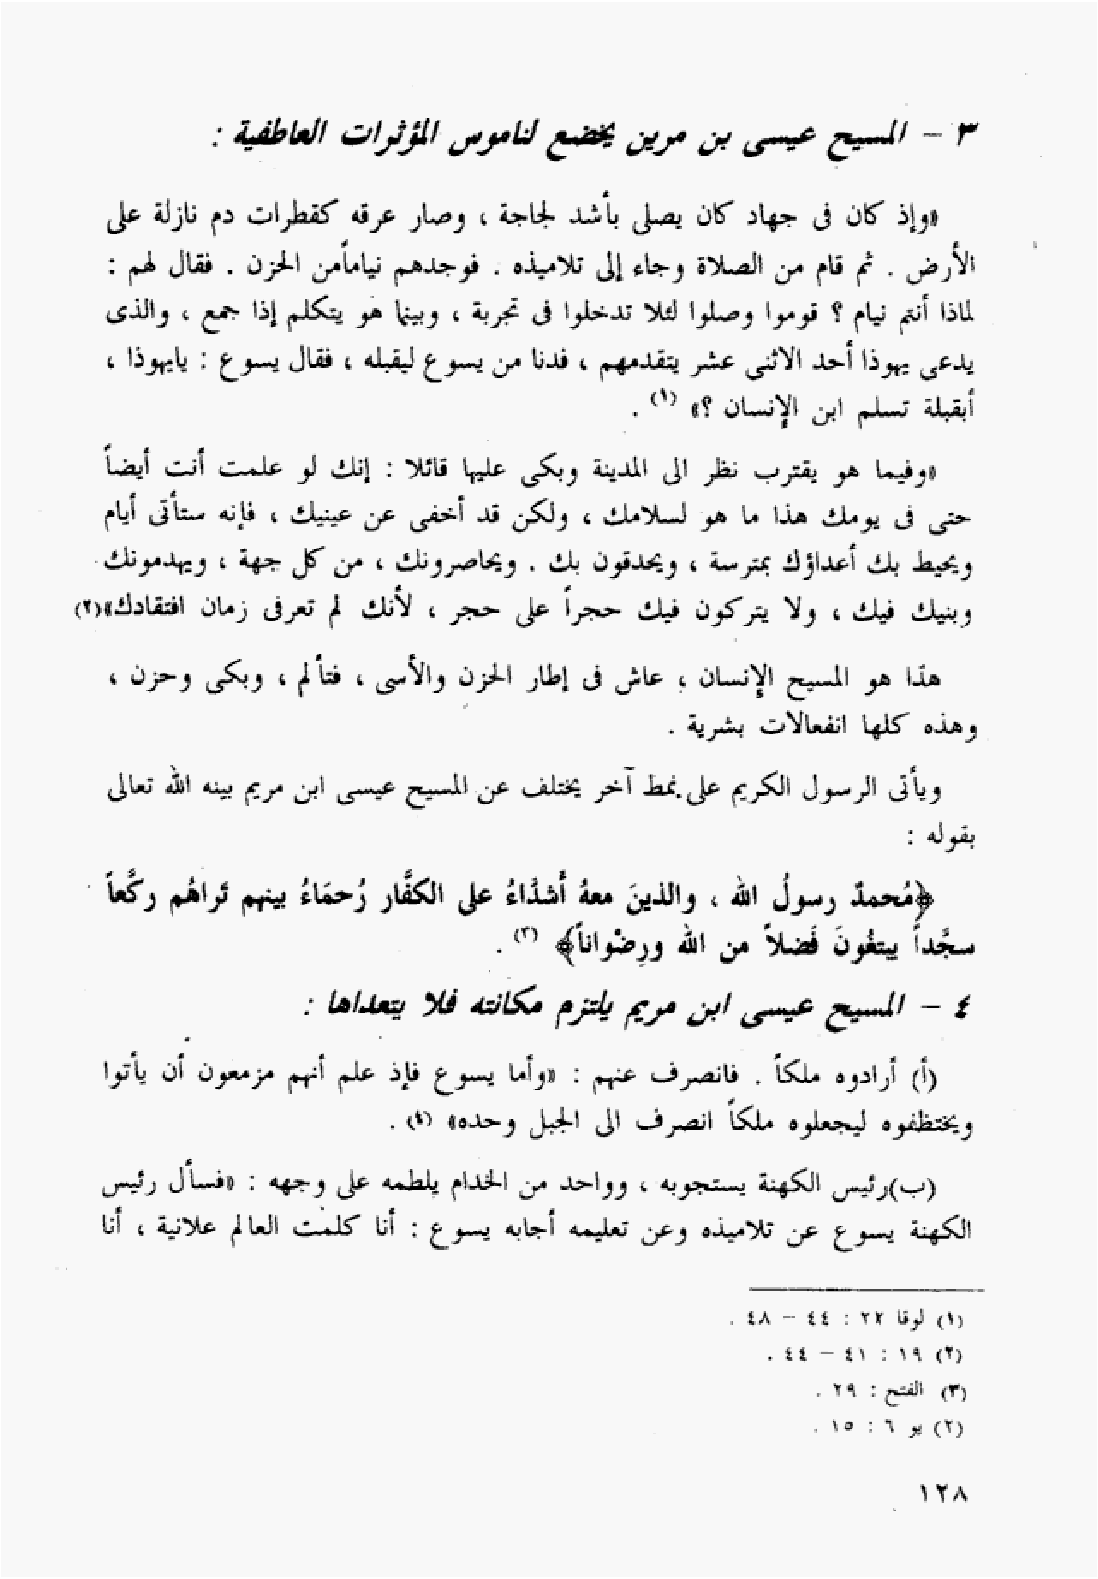 ٣ – المسيح عيسى بن مرين يخضع لناموس المؤثرات العاطفية :
«وإذ كان فى جهاد كان يصلى بأشد لجاجة ، وصار عرقه كقطرات دم نازلة على
الأرض . ثم قام من الصلاة وجاء إلى تلاميذه . فوجدهم نياماًمن الحزن . فقال لهم :
لماذا أنتم نيام ؟ قوموا وصلوا لئلا تدخلوا فى تجربة ، وبينما هو يتكلم إذا جمع ، والذى
يدعى يهوذا أحد الاثنى عشر يتقدمهم ، فدنا من يسوع ليقبله ، فقال يسوع : يايهوذا ،
أبقبلة تسلم ابن الإنسان ؟» (١) .
«وفيما هو يقترب نظر الى المدينة وبكى عليها قائلا : إنك لو علمت أنت أيضاً
حتى فى يومك هذا ما هو لسلامك ، ولكن قد أخفى عن عينيك ، فإنه ستأتى أيام
ويحيط بك أعداؤك بمترسة ، ويحدقون بك . ويحاصرونك ، من كل جهة ، ويهدمونك
وبنيك فيك ، ولا يتركون فيك حجراً على حجر ، لأنك لم تعرفى زمان افتقادك»(٢)
هذا هو المسيح الإنسان ؛ عاش فى إطار الحزن والأسى ، فتألم ، وبكى وحزن ،
وهذه كلها انفعالات بشرية .
ويأتى الرسول الكريم على نمط آخر يختلف عن المسيح عيسى ابن مريم بينه الله تعالى
بقوله :
﴿مُحمدٌ رسولُ الله ، والذينَ معهُ أشدَّاءُ على الكفَّار رُحمَاءُ بينهم تَراهُم ركَّعاً
سجَّداً يبتغُونَ فَضلاً من الله ورِضْواناً﴾ (٣) .
٤ – المسيح عيسى ابن مريم يلتزم مكانته فلا يتعداها :
(أ) أرادوه ملكاً . فانصرف عنهم : «وأما يسوع فإذ علم أنهم مزمعون أن يأتوا
ويختظفوه ليجعلوه ملكاً انصرف الى الجبل وحده» (٤) .
(ب)رئيس الكهنة يستجوبه ، وواحد من الخدام يلطمه على وجهه : «فسأل رئيس
الكهنة يسوع عن تلاميذه وعن تعليمه أجابه يسوع : أنا كلمت العالم علانية ، أنا
(١) لوقا ٢٢ : ٤٤ – ٤٨ .
(٢) ١٩ : ٤١ – ٤٤ .
(٣) الفتح : ٢٩ .
(٢) يو ٦ : ١٥ .
١٢٨